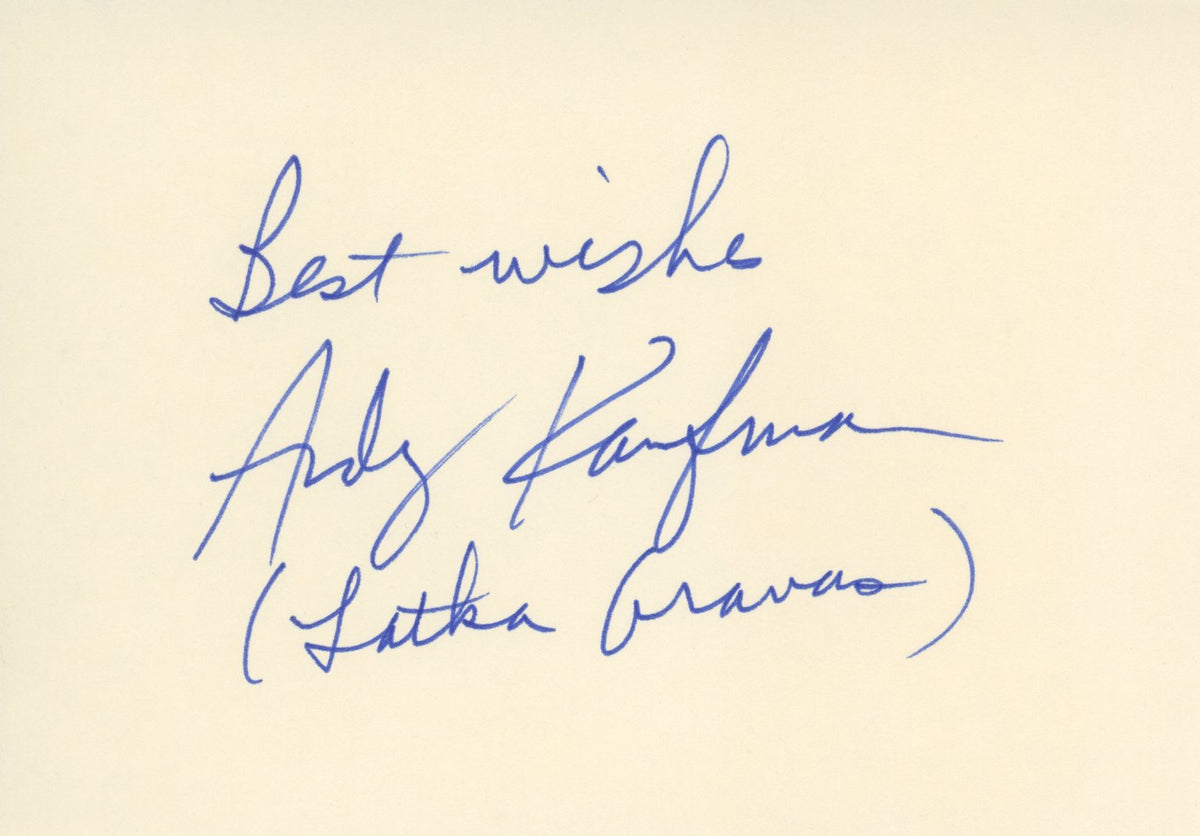 Best wishes
Andy Kaufman
(Latka Gravas)